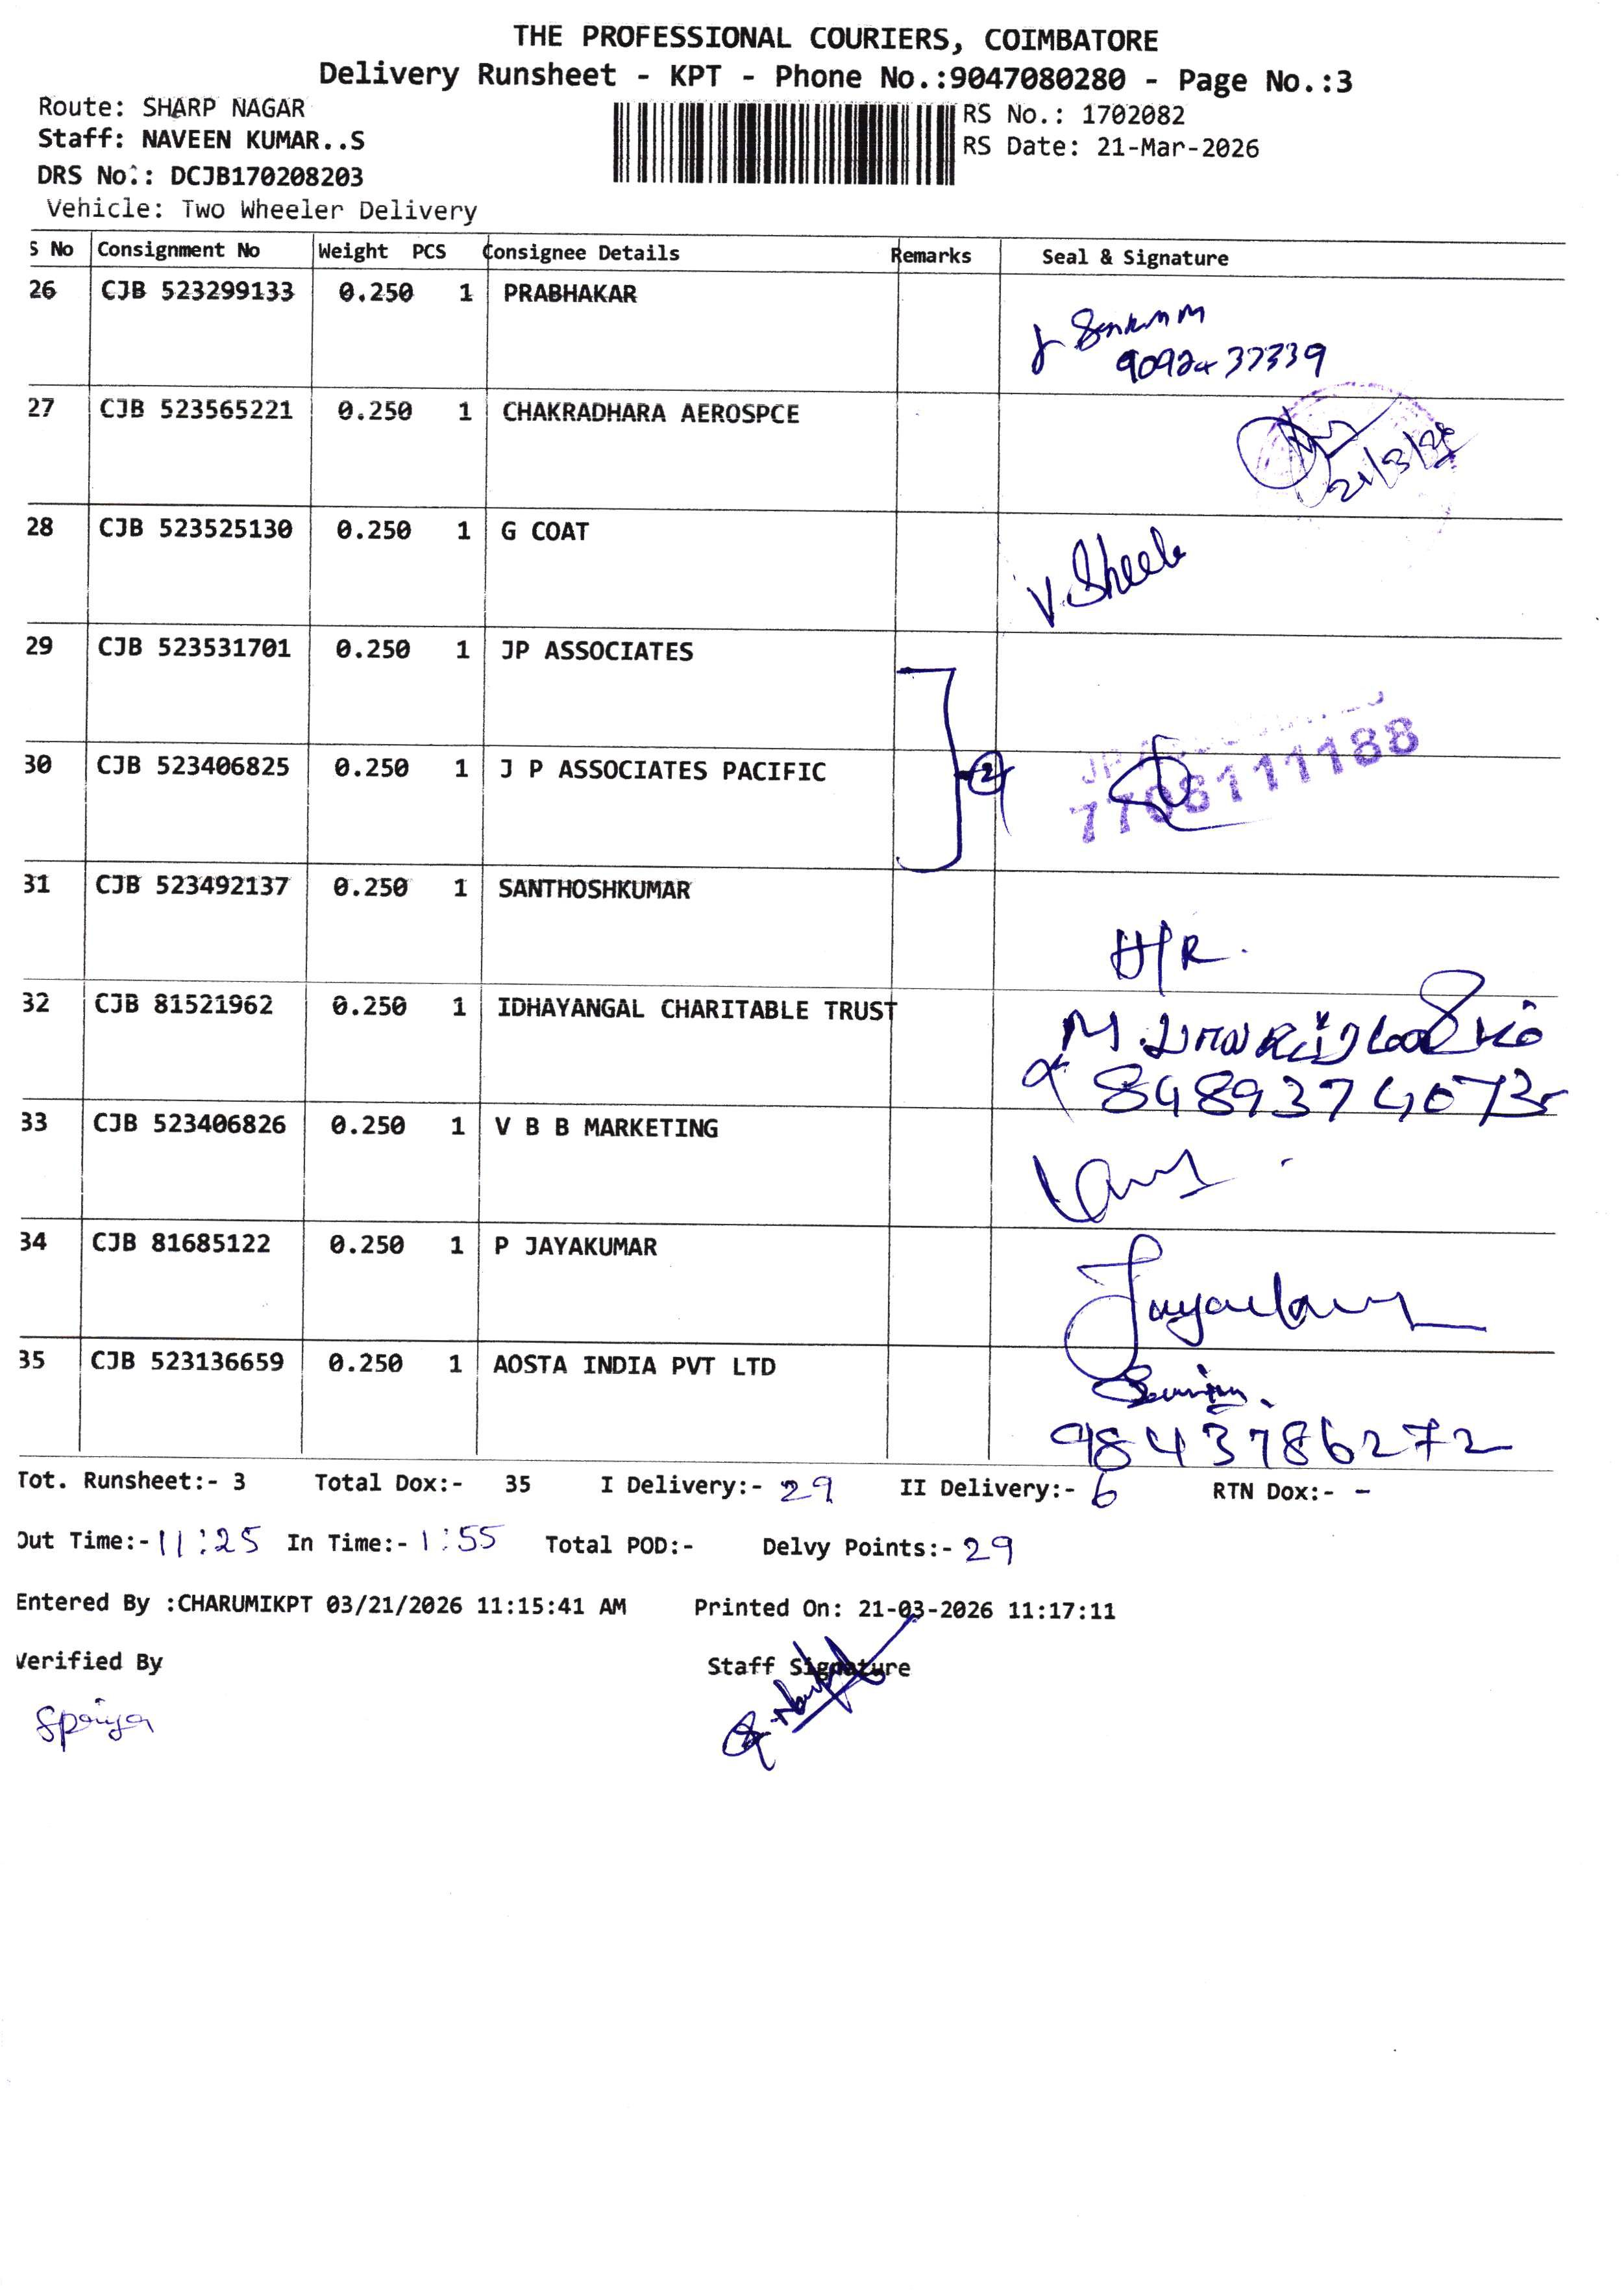 THE PROFESSIONAL COURIERS, COIMBATORE
Delivery Runsheet - KPT - Phone No.:9047080280 - Page No.:3
Route: SHARP NAGAR
RS No.: 1702082
Staff: NAVEEN KUMAR..S
RS Date: 21-Mar-2026
DRS No.: DCJB170208203
Vehicle: Two Wheeler Delivery
S No Consignment No Weight PCS Consignee Details Remarks Seal & Signature
26 CJB 523299133 0.250 1 PRABHAKAR
27 CJB 523565221 0.250 1 CHAKRADHARA AEROSPCE
21/3/26
28 CJB 523525130 0.250 1 G COAT
V. Sheela
29 CJB 523531701 0.250 1 JP ASSOCIATES
30 CJB 523406825 0.250 1 J P ASSOCIATES PACIFIC
2
JP
7708111188
31 CJB 523492137 0.250 1 SANTHOSHKUMAR
H/R.
32 CJB 81521962 0.250 1 IDHAYANGAL CHARITABLE TRUST
M.
8489374073
33 CJB 523406826 0.250 1 V B B MARKETING
34 CJB 81685122 0.250 1 P JAYAKUMAR
35 CJB 523136659 0.250 1 AOSTA INDIA PVT LTD
9843786272
Tot. Runsheet:- 3 Total Dox:- 35 I Delivery:- 29 II Delivery:- 6 RTN Dox:- -
Out Time:- 11:25 In Time:- 1:55 Total POD:- Delvy Points:- 29
Entered By :CHARUMIKPT 03/21/2026 11:15:41 AM Printed On: 21-03-2026 11:17:11
Verified By Staff Signature